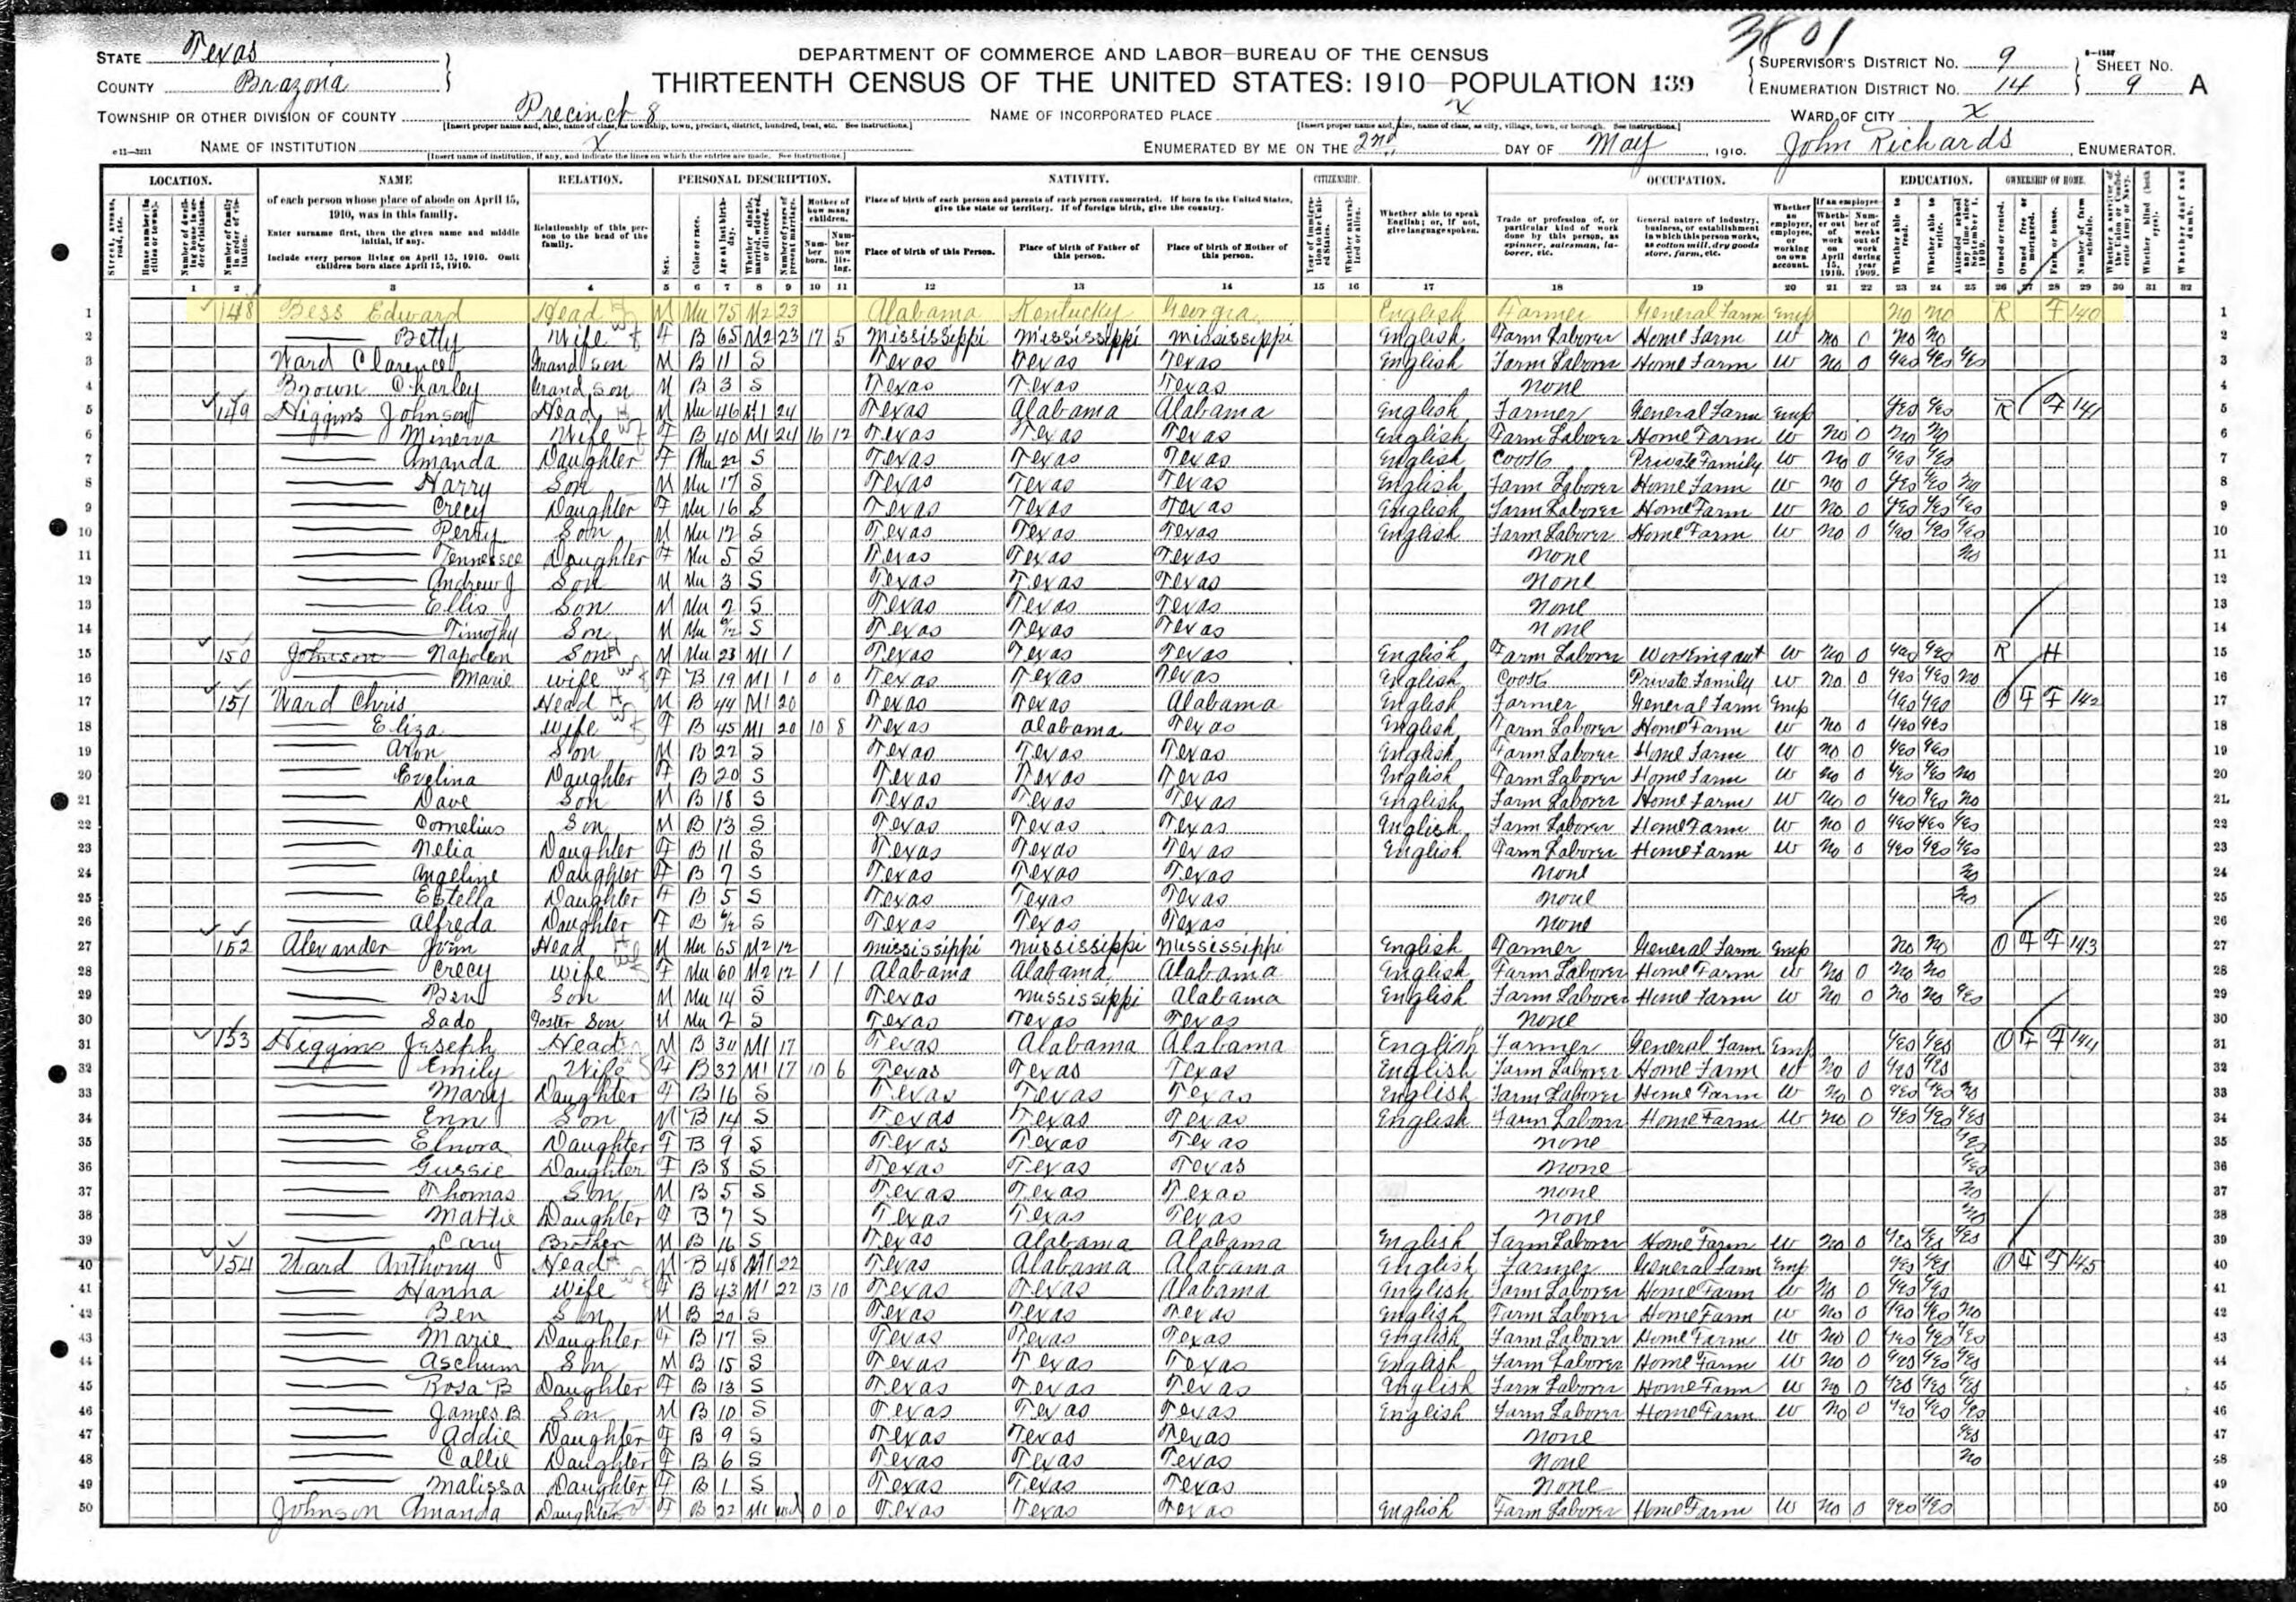 3801
STATE Texas
COUNTY Brazoria
DEPARTMENT OF COMMERCE AND LABOR—BUREAU OF THE CENSUS
THIRTEENTH CENSUS OF THE UNITED STATES: 1910—POPULATION 139
SUPERVISOR'S DISTRICT No. 9
ENUMERATION DISTRICT No. 14
SHEET No. 9 A
TOWNSHIP OR OTHER DIVISION OF COUNTY Precinct 8
NAME OF INCORPORATED PLACE X
WARD OF CITY X
NAME OF INSTITUTION X
ENUMERATED BY ME ON THE 2nd DAY OF May, 1910. John Richards, ENUMERATOR.
LOCATION. NAME RELATION. PERSONAL DESCRIPTION. NATIVITY. CITIZENSHIP. OCCUPATION. EDUCATION. OWNERSHIP OF HOME.
of each person whose place of abode on April 15, 1910, was in this family.
Enter surname first, then the given name and middle initial, if any.
Include every person living on April 15, 1910. Omit children born since April 15, 1910.
Relationship of this person to the head of the family.
Place of birth of each person and parents of each person enumerated. If born in the United States, give the state or territory. If of foreign birth, give the country.
Place of birth of this Person. Place of birth of Father of this person. Place of birth of Mother of this person.
Whether able to speak English; or, if not, give language spoken.
1 2 3 4 5 6 7 8 9 10 11 12 13 14 15 16 17 18 19 20 21 22 23 24 25 26 27 28 29 30 31 32
1 148 Bess Edward Head M Mu 75 M2 23 Alabama Kentucky Georgia English Farmer General Farm Emp no no R F 140 1
2 Betty Wife F B 65 M2 23 17 5 Mississippi Mississippi Mississippi English Farm Laborer Home Farm W no 0 no no 2
3 Ward Clarence Grand son M B 11 S Texas Texas Texas English Farm Laborer Home Farm W no 0 yes yes yes 3
4 Brown Charley Grand son M B 3 S Texas Texas Texas none 4
5 149 Higgins Johnson Head M Mu 46 M1 24 Texas Alabama Alabama English Farmer General Farm Emp yes yes R F 141 5
6 Minerva Wife F B 40 M1 24 16 12 Texas Texas Texas English Farm Laborer Home Farm W no 0 no no 6
7 Amanda Daughter F Mu 22 S Texas Texas Texas English Cook Private Family W no 0 yes yes 7
8 Harry Son M Mu 17 S Texas Texas Texas English Farm Laborer Home Farm W no 0 yes yes no 8
9 Crecy Daughter F Mu 16 S Texas Texas Texas English Farm Laborer Home Farm W no 0 yes yes yes 9
10 Perry Son M Mu 12 S Texas Texas Texas English Farm Laborer Home Farm W no 0 yes yes yes 10
11 Tennessee Daughter F Mu 5 S Texas Texas Texas none no 11
12 Andrew J Son M Mu 3 S Texas Texas Texas none 12
13 Ellis Son M Mu 2 S Texas Texas Texas none 13
14 Timothy Son M Mu S Texas Texas Texas none 14
15 150 Johnson Napolen Son M Mu 23 M1 1 Texas Texas Texas English Farm Laborer Working out W no 0 yes yes R H 15
16 Marie Wife F B 19 M1 1 0 0 Texas Texas Texas English Cook Private Family W no 0 yes yes no 16
17 151 Ward Chris Head M B 44 M1 20 Texas Texas Alabama English Farmer General Farm Emp yes yes O F F 142 17
18 Eliza Wife F B 45 M1 20 10 8 Texas Alabama Texas English Farm Laborer Home Farm W no 0 yes yes 18
19 Aron Son M B 22 S Texas Texas Texas English Farm Laborer Home Farm W no 0 yes yes 19
20 Evelina Daughter F B 20 S Texas Texas Texas English Farm Laborer Home Farm W no 0 yes yes no 20
21 Dave Son M B 18 S Texas Texas Texas English Farm Laborer Home Farm W no 0 yes yes no 21
22 Cornelius Son M B 13 S Texas Texas Texas English Farm Laborer Home Farm W no 0 yes yes yes 22
23 Nelia Daughter F B 11 S Texas Texas Texas English Farm Laborer Home Farm W no 0 yes yes yes 23
24 Angeline Daughter F B 7 S Texas Texas Texas none no 24
25 Estella Daughter F B 5 S Texas Texas Texas none no 25
26 Alfreda Daughter F B S Texas Texas Texas none 26
27 152 Alexander Head M Mu 65 M2 12 Mississippi Mississippi Mississippi English Farmer General Farm Emp no no O F F 143 27
28 Crecy Wife F Mu 60 M2 12 1 1 Alabama Alabama Alabama English Farm Laborer Home Farm W no 0 no no 28
29 Ben Son M Mu 14 S Texas Mississippi Alabama English Farm Laborer Home Farm W no 0 no no yes 29
30 Sado Foster Son M Mu 2 S Texas Texas Texas none 30
31 153 Higgins Joseph Head M B 30 M1 17 Texas Alabama Alabama English Farmer General Farm Emp yes yes O F F 144 31
32 Emily Wife F B 32 M1 17 10 6 Texas Texas Texas English Farm Laborer Home Farm W no 0 yes yes 32
33 Mary Daughter F B 16 S Texas Texas Texas English Farm Laborer Home Farm W no 0 yes yes no 33
34 Enn Son M B 14 S Texas Texas Texas English Farm Laborer Home Farm W no 0 yes yes yes 34
35 Elnora Daughter F B 9 S Texas Texas Texas none yes 35
36 Gussie Daughter F B 8 S Texas Texas Texas none yes 36
37 Thomas Son M B 5 S Texas Texas Texas none no 37
38 Mattie Daughter F B 7 S Texas Texas Texas none no 38
39 Cary Brother M B 16 S Texas Alabama Alabama English Farm Laborer Home Farm W no 0 yes yes yes 39
40 154 Ward Anthony Head M B 48 M1 22 Texas Alabama Alabama English Farmer General Farm Emp yes yes O F F 145 40
41 Hanna Wife F B 43 M1 22 13 10 Texas Texas Alabama English Farm Laborer Home Farm W no 0 yes yes 41
42 Ben Son M B 20 S Texas Texas Texas English Farm Laborer Home Farm W no 0 yes yes no 42
43 Marie Daughter F B 17 S Texas Texas Texas English Farm Laborer Home Farm W no 0 yes yes yes 43
44 Aschum Son M B 15 S Texas Texas Texas English Farm Laborer Home Farm W no 0 yes yes yes 44
45 Rosa B Daughter F B 13 S Texas Texas Texas English Farm Laborer Home Farm W no 0 yes yes yes 45
46 James B Son M B 10 S Texas Texas Texas English Farm Laborer Home Farm W no 0 yes yes yes 46
47 Addie Daughter F B 9 S Texas Texas Texas none yes 47
48 Callie Daughter F B 6 S Texas Texas Texas none no 48
49 Malissa Daughter F B 1 S Texas Texas Texas none 49
50 Johnson Amanda Daughter F B 22 M1 0 0 Texas Texas Texas English Farm Laborer Home Farm W no 0 yes yes 50